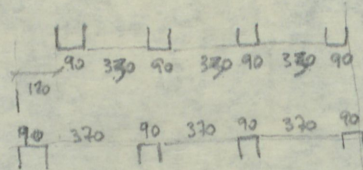 90 330 90 330 90 330 90
120
90 370 90 370 90 370 90